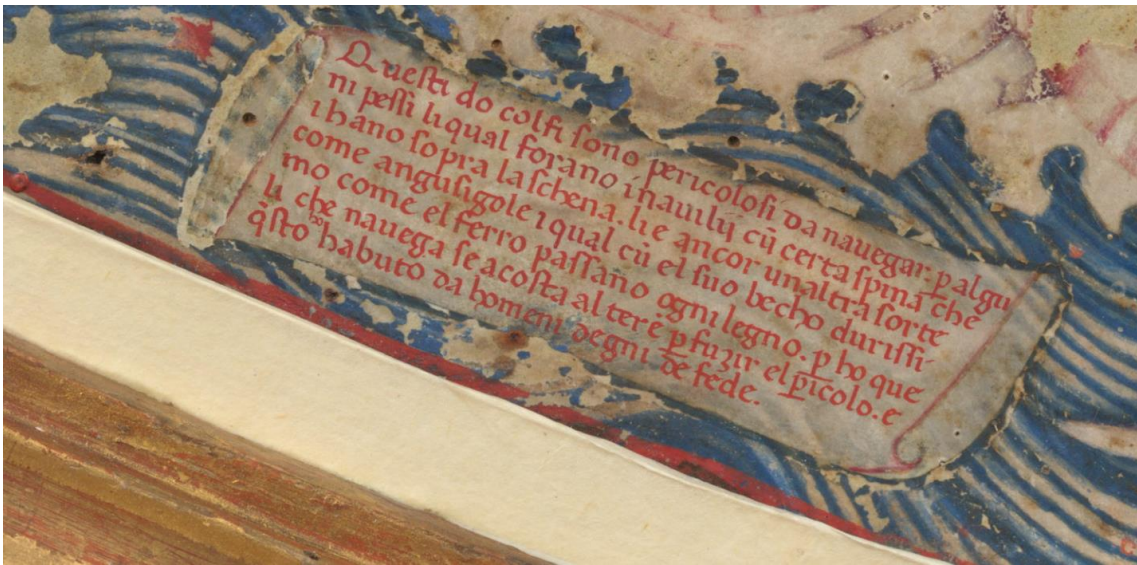 Questi do colfi sono pericolosi da nauegar. ꝑ algu
ni pessi liqual forano i nauilÿ cū certa spina che
i hano sopra la schena. li e ancor unaltra sorte
come angusigole i qual cū el suo becho durissi-
mo come el ferro passano ogni legno. ꝑ ho que
li che nauega se acosta al tere ꝑ fuzir el ꝑicolo. e
q̄sto ho habuto da homeni degni de fede.